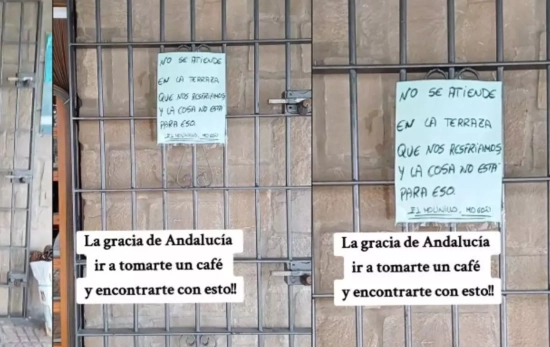 NO SE ATIENDE
EN LA TERRAZA
QUE NOS RESFRIAMOS
Y LA COSA NO ESTA
PARA ESO.
EL MOLINILLO,
La gracia de Andalucía
ir a tomarte un café
y encontrarte con esto!!
NO SE ATIENDE
EN LA TERRAZA
QUE NOS RESFRIAMOS
Y LA COSA NO ESTÁ
PARA ESO.
EL MOLINILLO,
La gracia de Andalucía
ir a tomarte un café
y encontrarte con esto!!